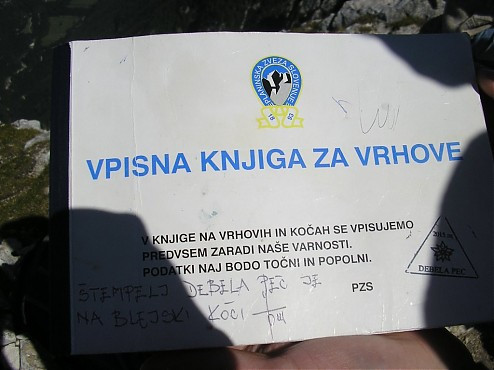 PLANINSKA ZVEZA SLOVENIJE
18 93
VPISNA KNJIGA ZA VRHOVE
V KNJIGE NA VRHOVIH IN KOČAH SE VPISUJEMO
PREDVSEM ZARADI NAŠE VARNOSTI.
PODATKI NAJ BODO TOČNI IN POPOLNI.
PZS
DEBELA PEČ
ŠTEMPELJ DEBELA PEČ JE
NA BLEJSKI KOČI